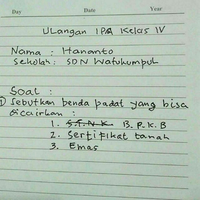 Day Date Year
Ulangan IPA Kelas IV
Nama : Hananto
Sekolah : SDN Watukumpul
Soal :
1) Sebutkan benda padat yang bisa
dicairkan :
1. S.T.N.K. B.P.K.B
2. Sertifikat tanah
3. Emas